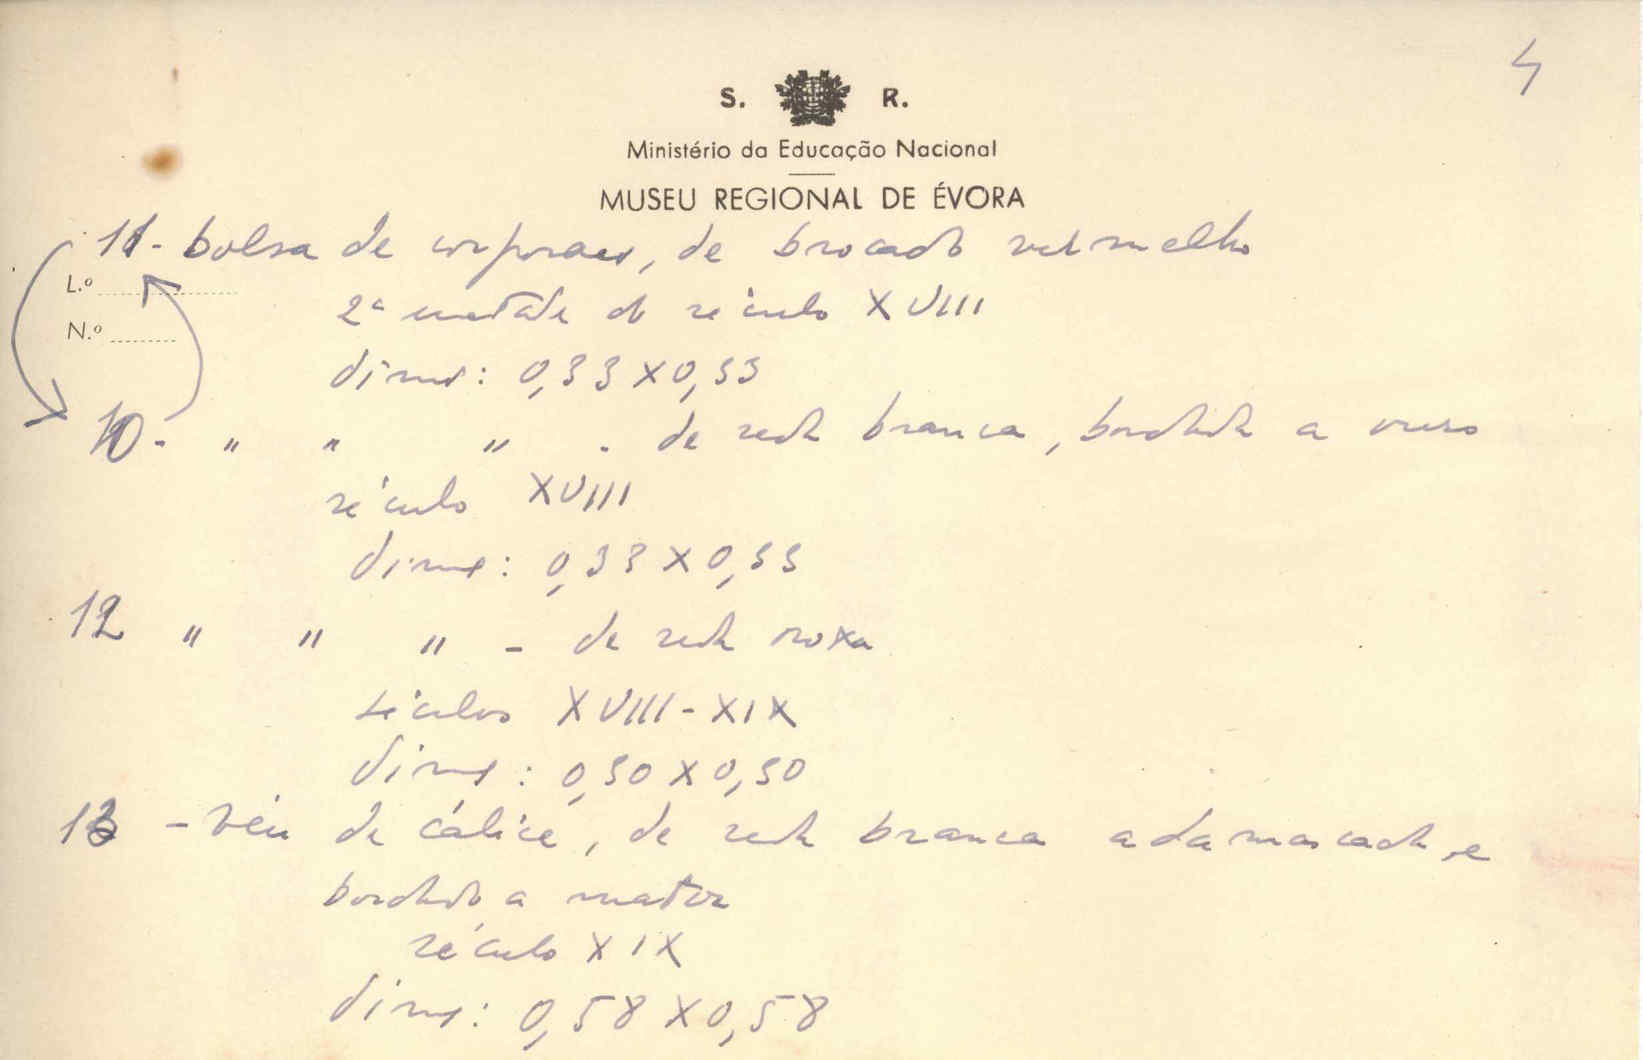 4
S. R.
Ministério da Educação Nacional
MUSEU REGIONAL DE ÉVORA
11- bolsa de corporaes, de brocado vermelho
L.º
2ª metade do século XVIII
N.º
dims: 0,33 X 0,33
10- " " " - de seda branca, bordada a ouro
século XVIII
dims: 0,33 X 0,33
12 " " " - de seda roxa
séculos XVIII-XIX
dims: 0,30 X 0,30
13 - véu de cálice, de seda branca adamascada, e
bordado a matiz
século XIX
dims: 0,58 X 0,58